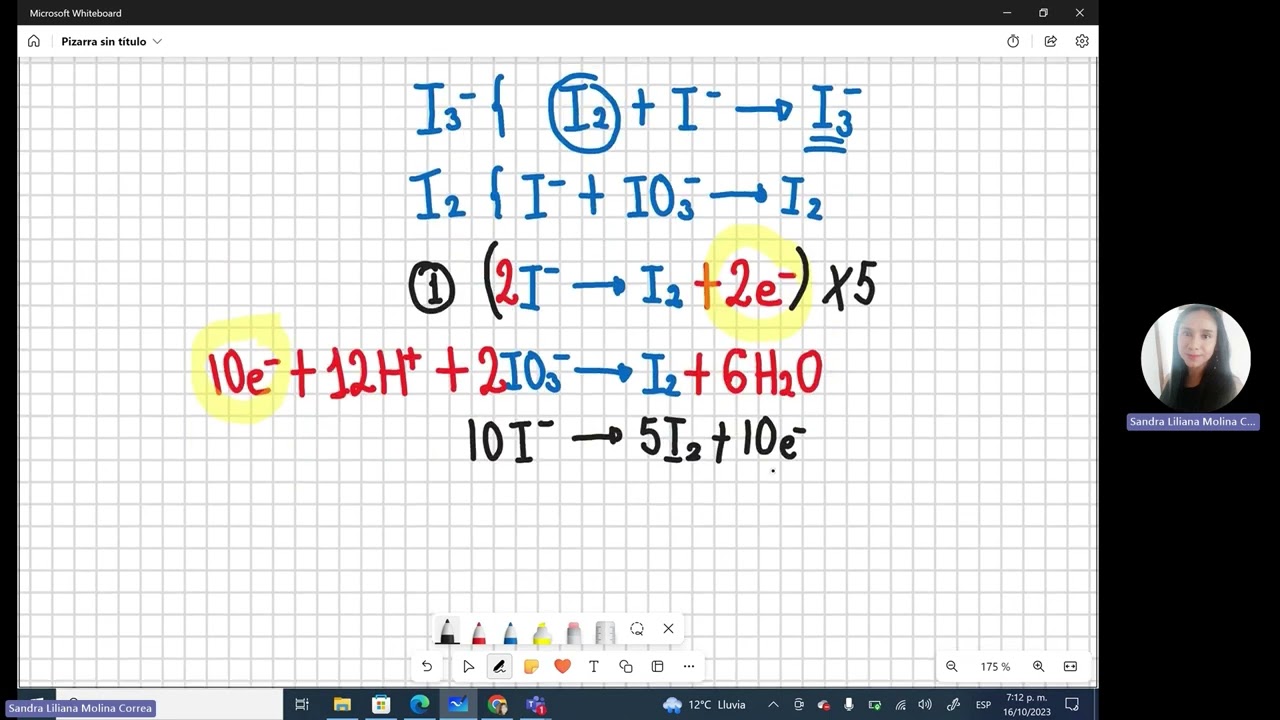 Microsoft Whiteboard
Pizarra sin título
I₃⁻ { I₂ + I⁻ → I₃⁻
I₂ { I⁻ + IO₃⁻ → I₂
① (2I⁻ → I₂ + 2e⁻) x5
10e⁻ + 12H⁺ + 2IO₃⁻ → I₂ + 6H₂O
10I⁻ → 5I₂ + 10e⁻
Sandra Liliana Molina C...
175 %
Sandra Liliana Molina Correa
12°C Lluvia
ESP
7:12 p. m.
16/10/2023